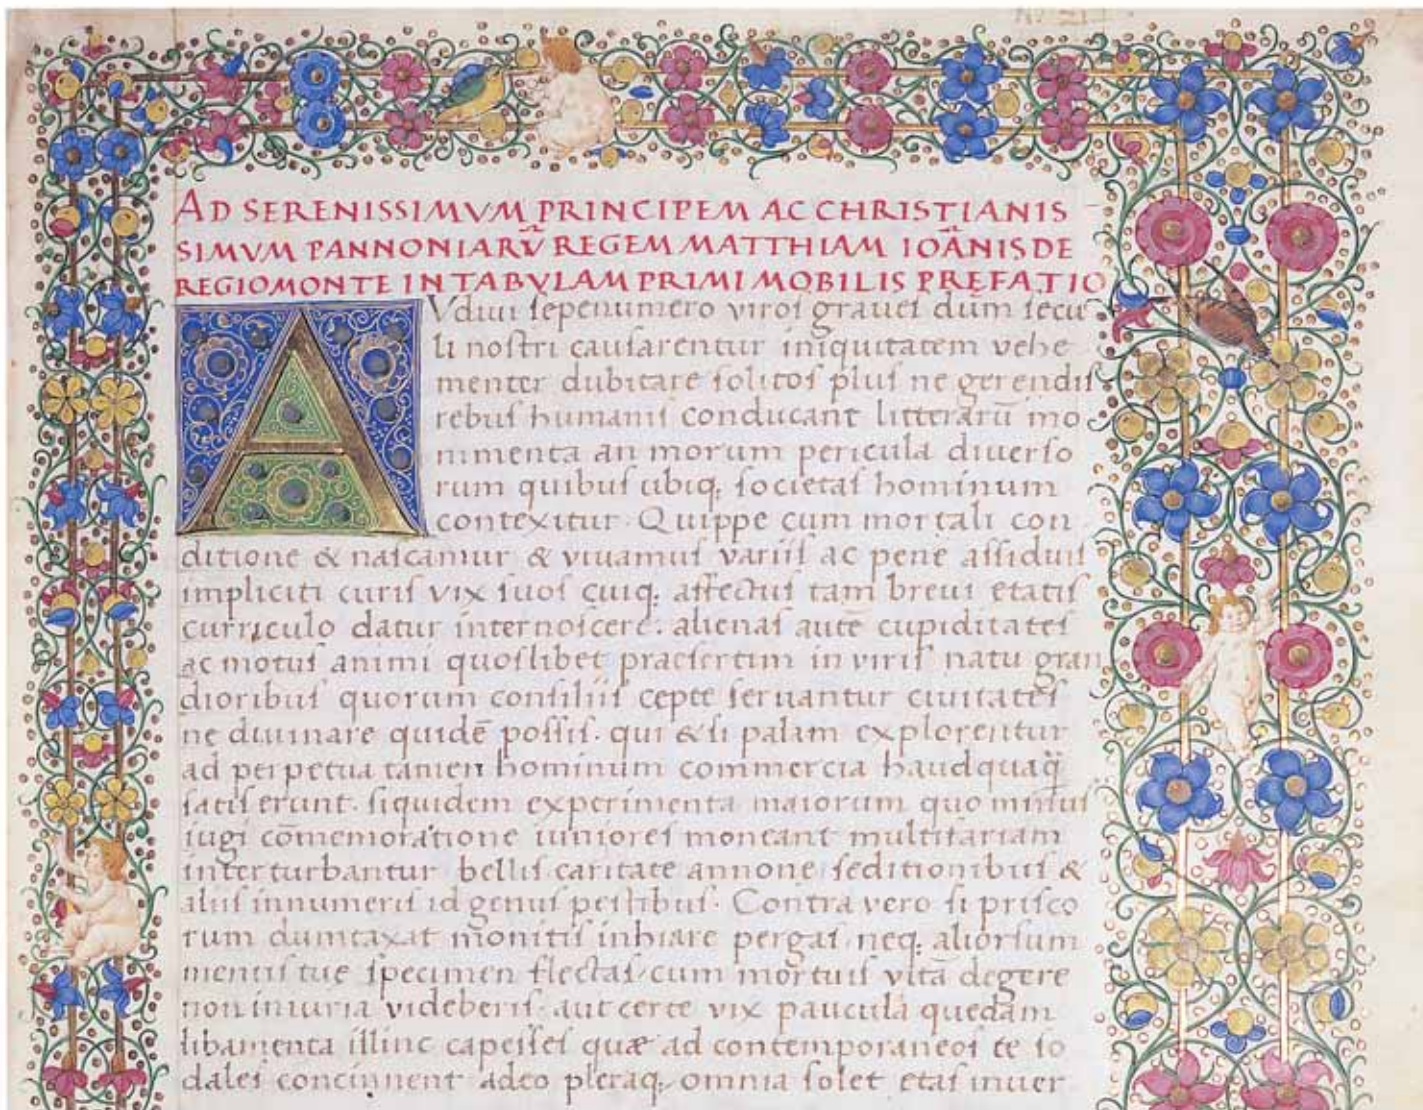 AD SERENISSIMVM PRINCIPEM AC CHRISTIANIS
SIMVM PANNONIARV̄ REGEM MATTHIAM IOĀNIS DE
REGIOMONTE IN TABVLAM PRIMI MOBILIS PREFATIO
AVdiui sepenumero viros graues dum secu
li nostri causarentur iniquitatem vehe
menter dubitare solitos plus ne gerendis
rebus humanis conducant litterarū mo
nimenta an morum pericula diuerso
rum quibus ubiq; societas hominum
contexitur. Quippe cum mortali con
ditione & nascamur & viuamus variis ac pene assiduis
impliciti curis vix suos cuiq; affectus tam breui etatis
curriculo datur internoscere. alienas autē cupiditates
ac motus animi quoslibet praesertim in viris natu gran
dioribus quorum consiliis cepte seruantur ciuitates
ne diuinare quidē possis. qui & si palam explorentur
ad perpetua tamen hominum commercia haudquaq̄
satis erunt. siquidem experimenta maiorum quo minus
iugi cōmemoratione iuniores moneant multifariam
interturbantur bellis caritate annone seditionibus &
aliis innumeris id genus pestibus. Contra vero si prisco
rum dumtaxat monitis inhiare pergas neq; aliorsum
mentis tue specimen flectas, cum mortuis vitā degere
non iniuria videberis. aut certe vix paucula quedam
libamenta illinc capesses quæ ad contemporaneos te so
dales concinnent adeo pleraq; omnia solet etas inuer